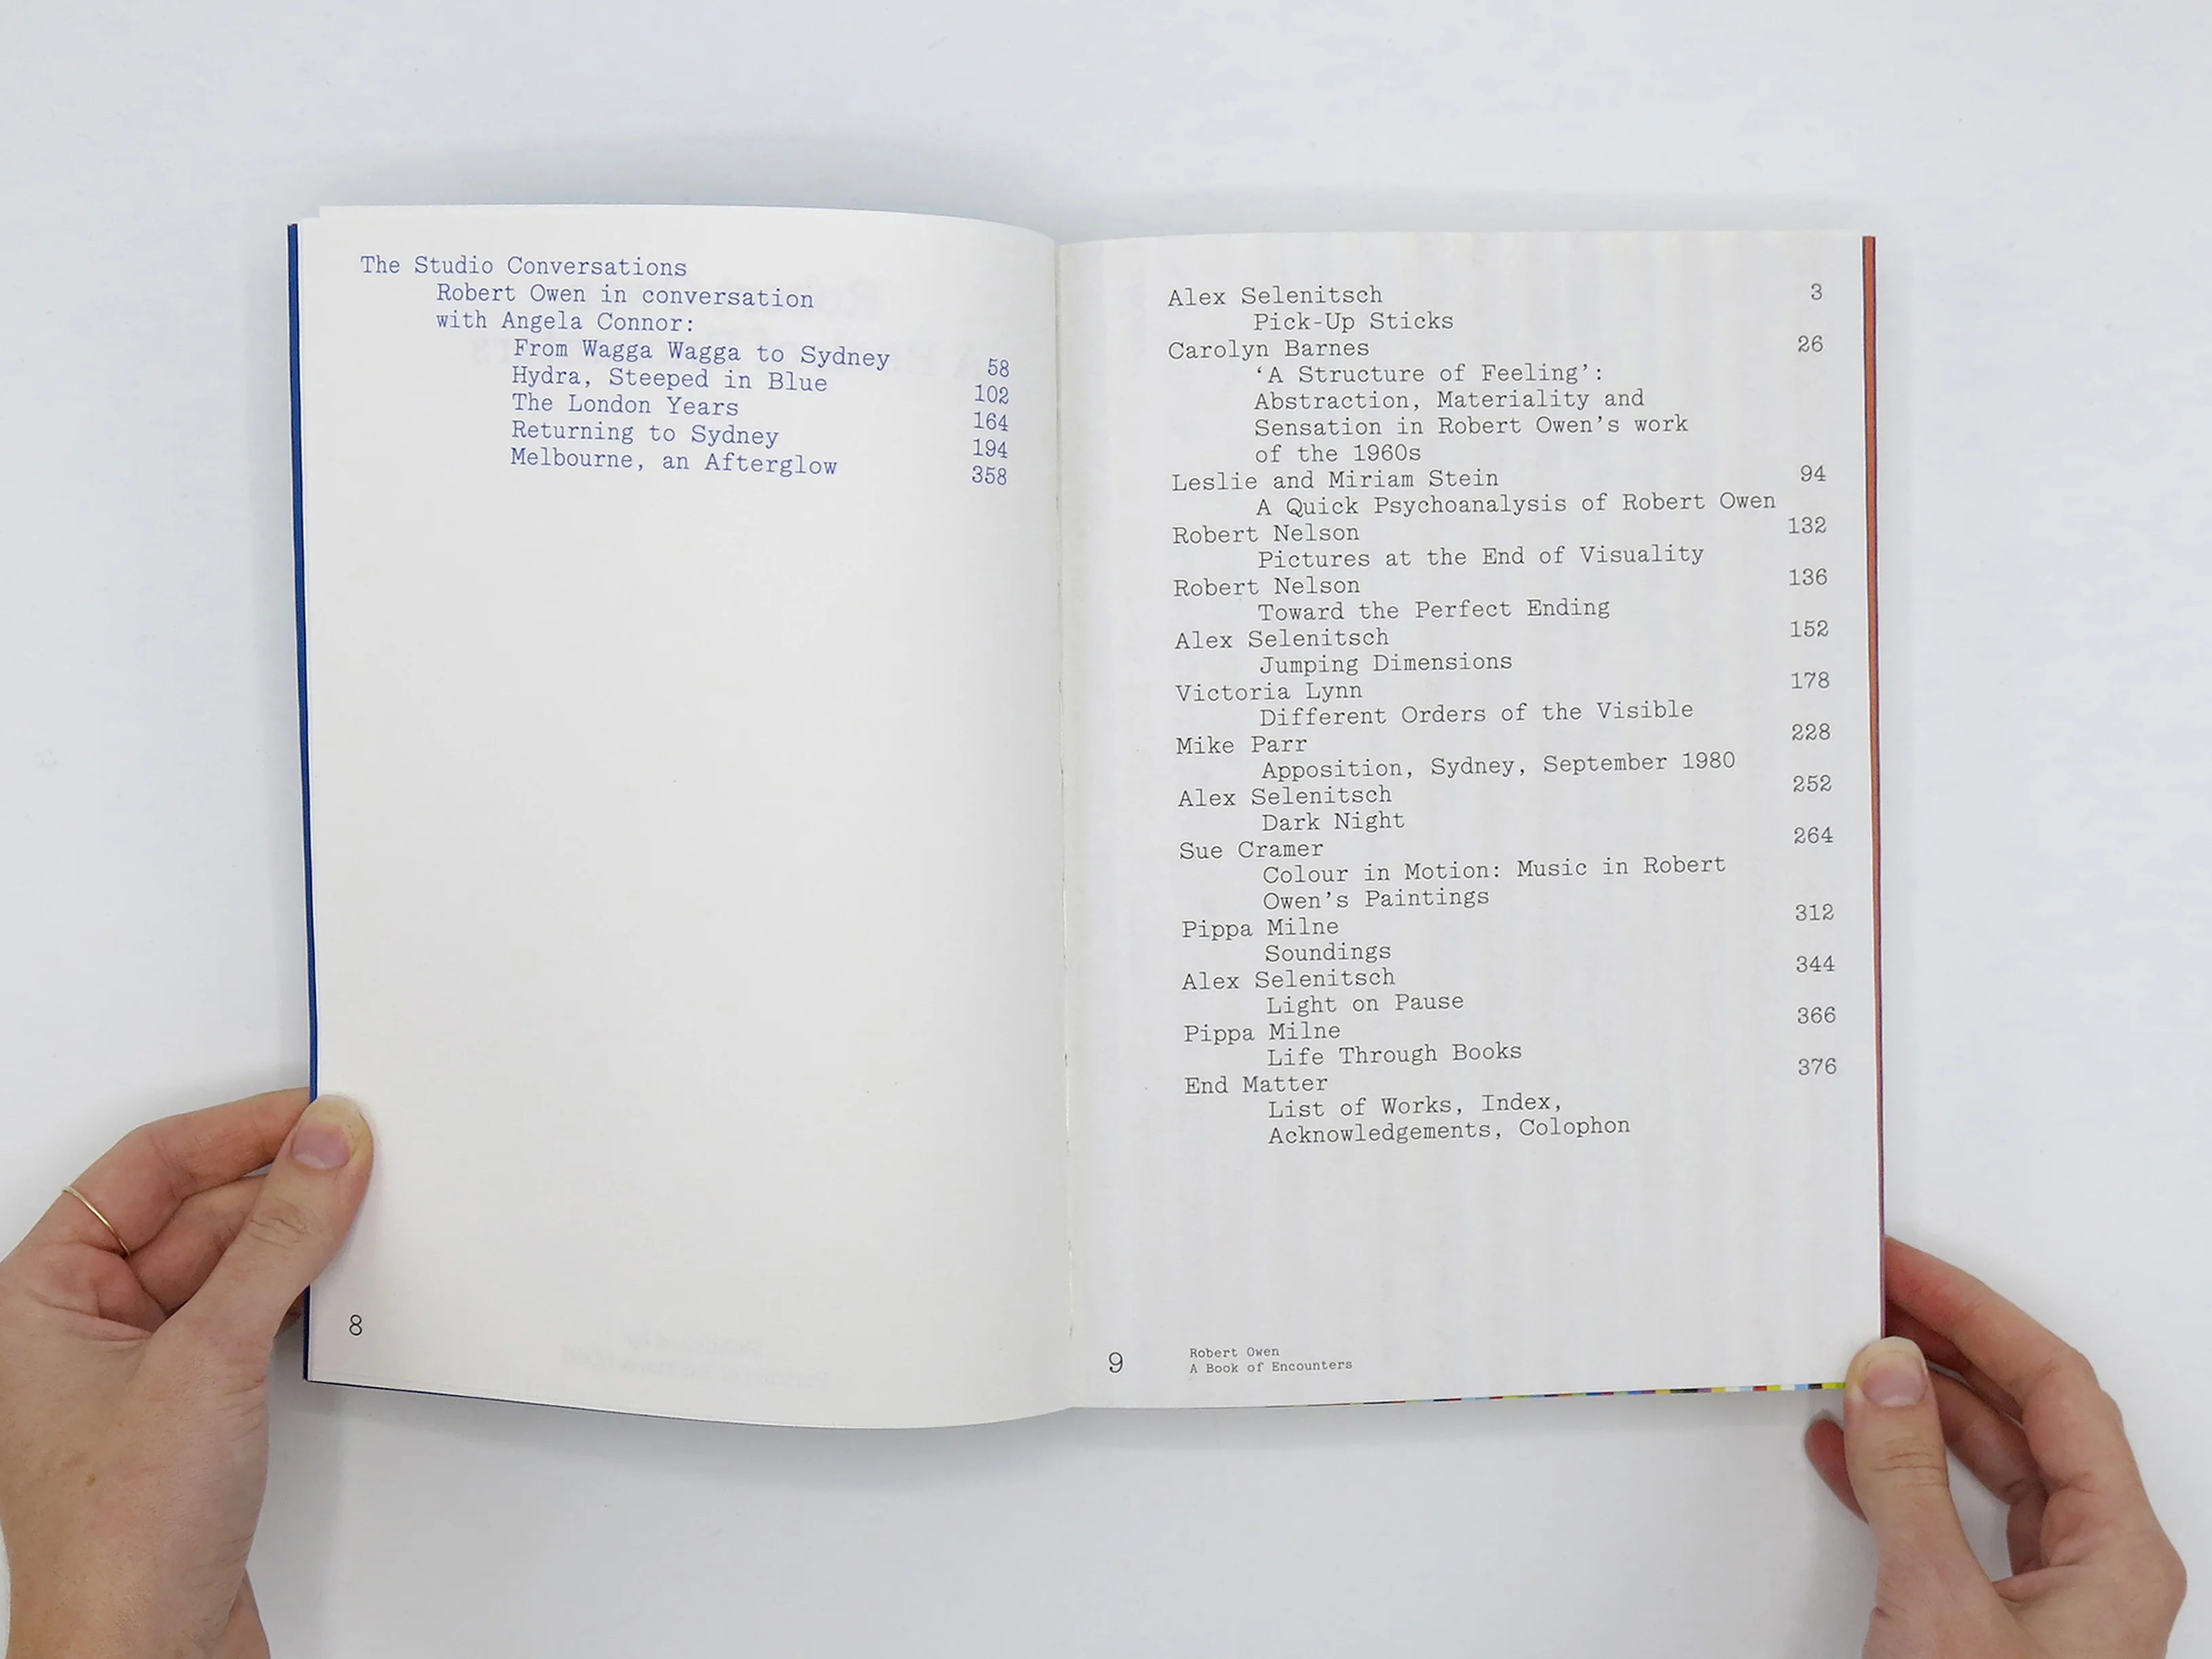 The Studio Conversations
Robert Owen in conversation
with Angela Connor:
From Wagga Wagga to Sydney 58
Hydra, Steeped in Blue 102
The London Years 164
Returning to Sydney 194
Melbourne, an Afterglow 358
8
Alex Selenitsch 3
Pick-Up Sticks
Carolyn Barnes 26
‘A Structure of Feeling’:
Abstraction, Materiality and
Sensation in Robert Owen’s work
of the 1960s
Leslie and Miriam Stein 94
A Quick Psychoanalysis of Robert Owen
Robert Nelson 132
Pictures at the End of Visuality
Robert Nelson 136
Toward the Perfect Ending
Alex Selenitsch 152
Jumping Dimensions
Victoria Lynn 178
Different Orders of the Visible
Mike Parr 228
Apposition, Sydney, September 1980
Alex Selenitsch 252
Dark Night
Sue Cramer 264
Colour in Motion: Music in Robert
Owen’s Paintings
Pippa Milne 312
Soundings
Alex Selenitsch 344
Light on Pause
Pippa Milne 366
Life Through Books
End Matter 376
List of Works, Index,
Acknowledgements, Colophon
9
Robert Owen
A Book of Encounters